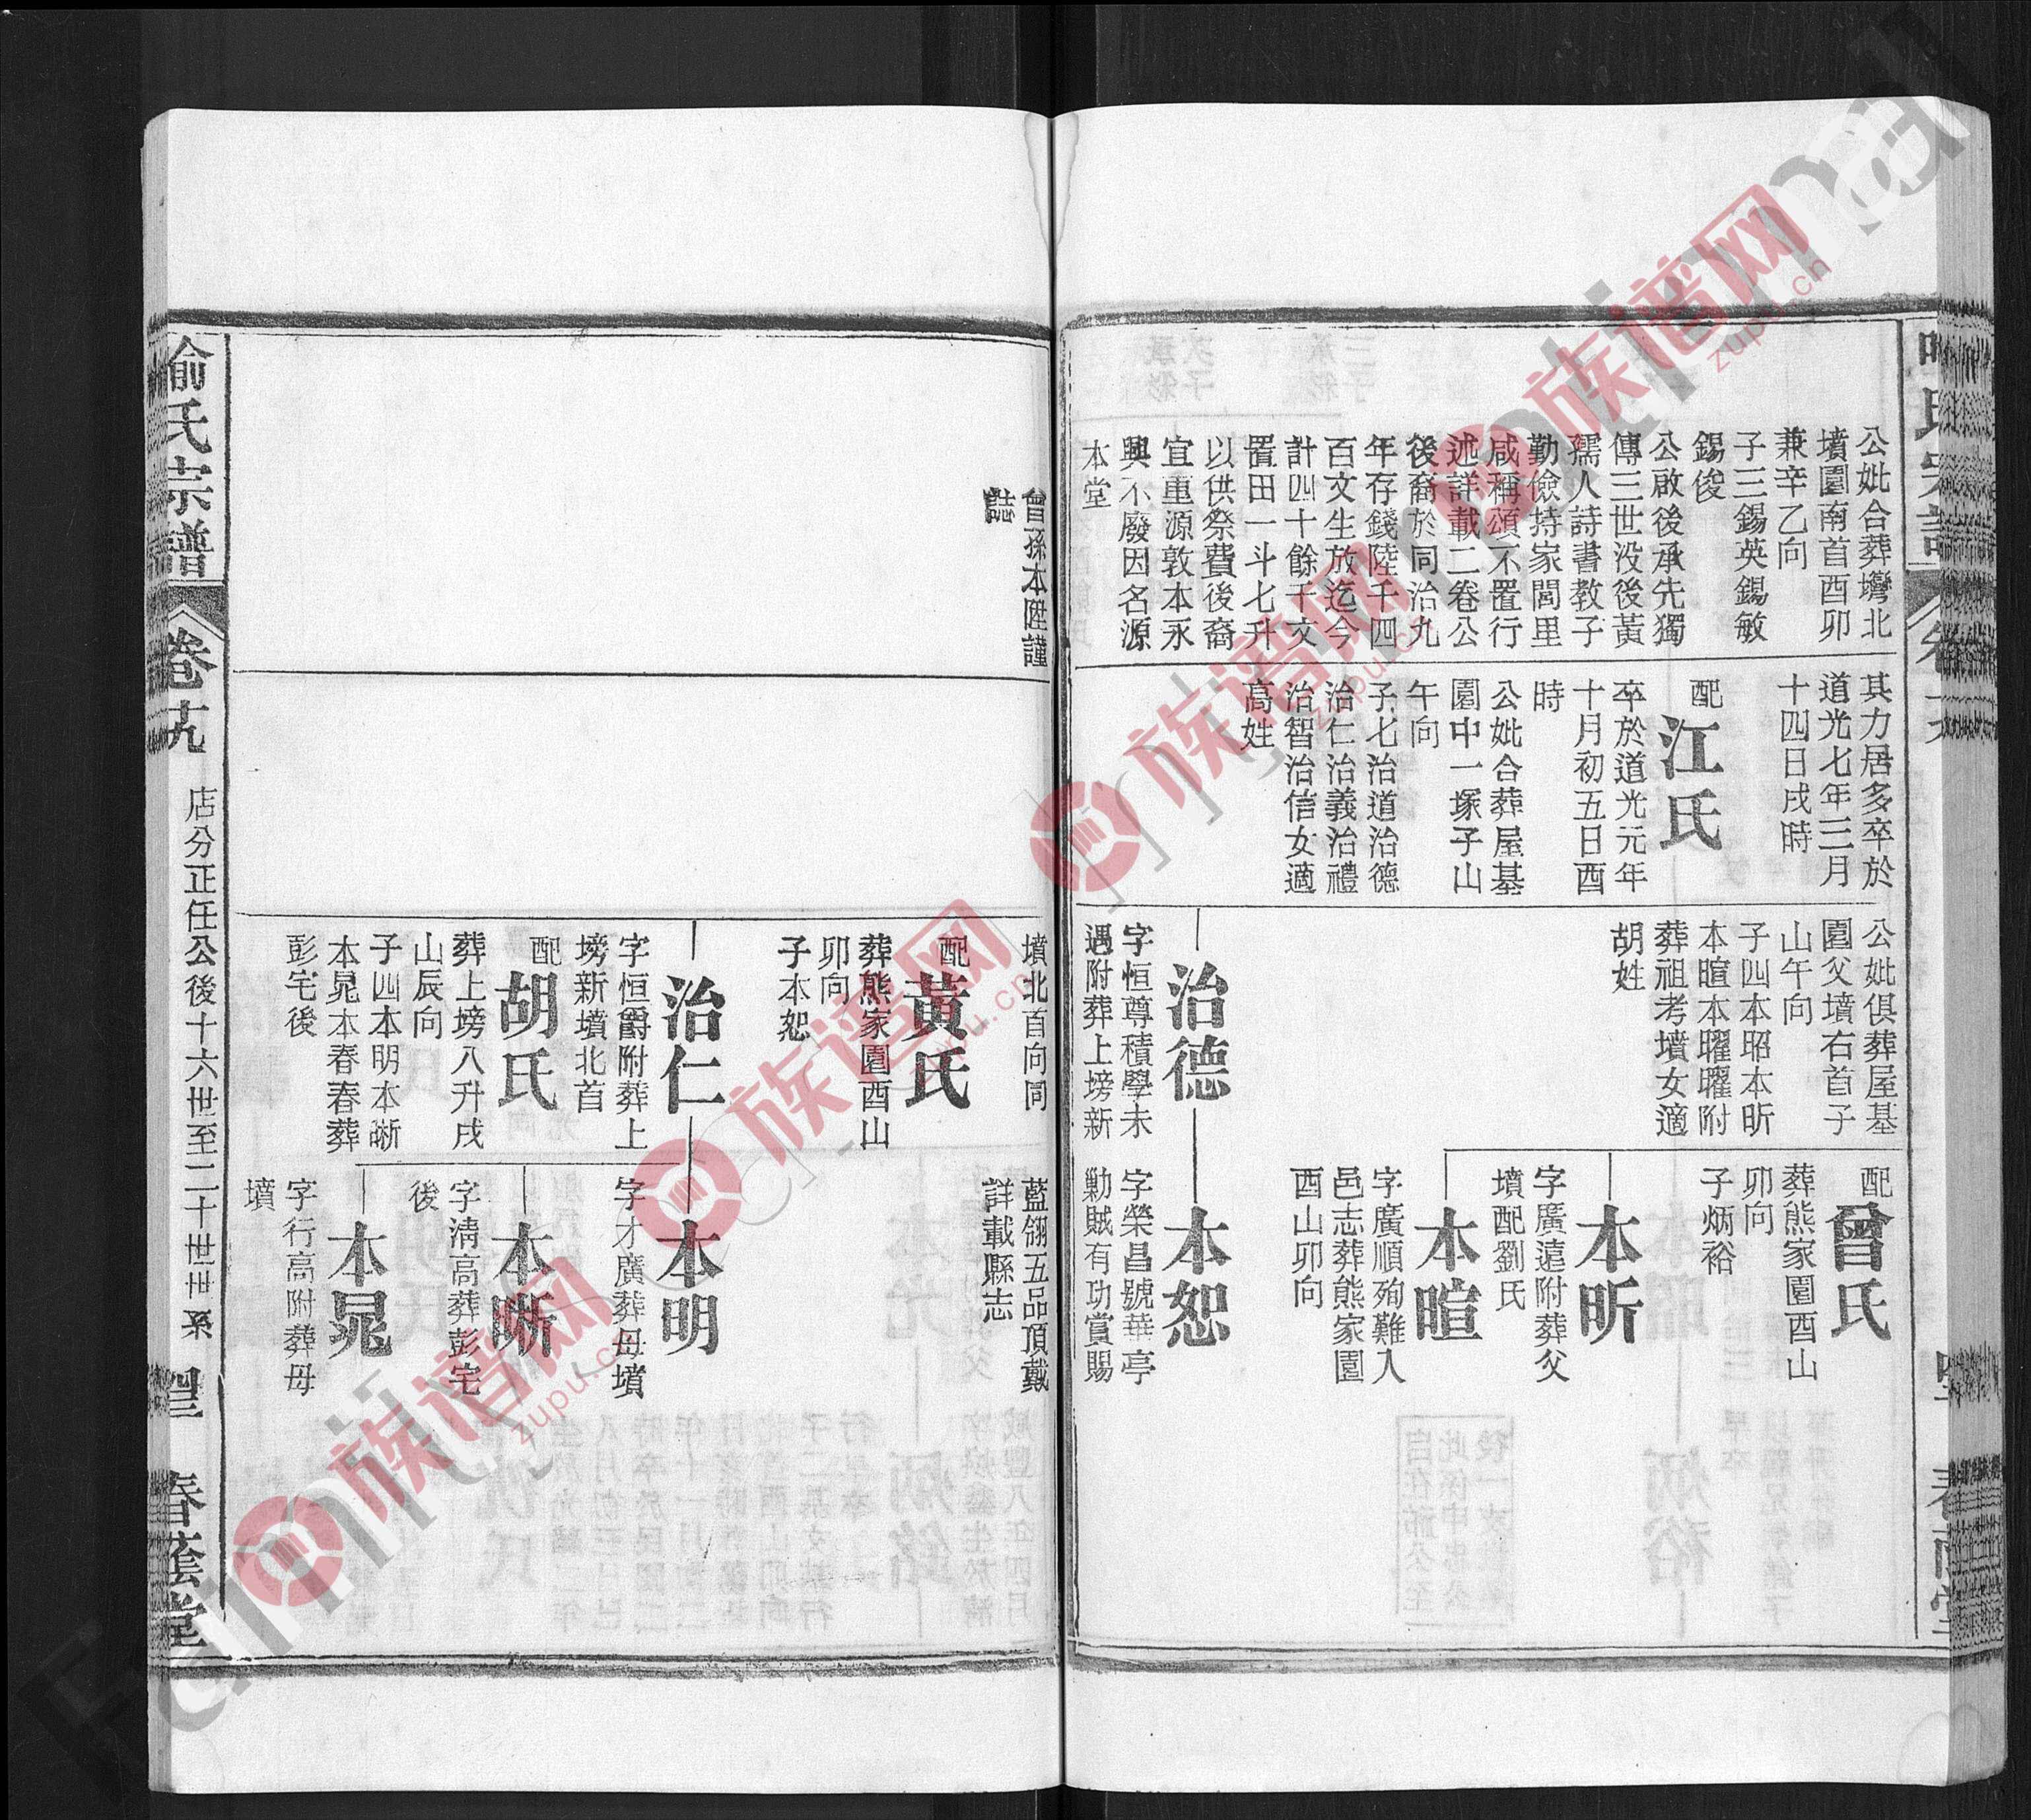 公妣合葬壪北
墳園南首酉卯
兼辛乙向
子三錫英錫敏
錫俊
公啟後承先獨
傳三世没後黃
孺人詩書教子
勤儉持家閭里
咸稱頌不置行
述詳載二卷公
後裔於同治九
年存錢陸千四
百文生放迄今
計四十餘千文
置田一斗七升
以供祭費後裔
宜重源敦本永
興不廢因名源
本堂
其力居多卒於
道光七年三月
十四日戌時
配
江氏
卒於道光元年
十月初五日酉
時
公妣合葬屋基
園中一塚子山
午向
子七治道治德
治仁治義治禮
治智治信女適
高姓
公妣俱葬屋基
園父墳右首子
山午向
子四本昭本昕
本暄本曜曜附
葬祖考墳女適
胡姓
治德
字恒尊積學未
遇附葬上塝新
配
曾氏
葬熊家園酉山
卯向
子炳裕
本昕
字廣遠附葬父
墳配劉氏
本暄
字廣順殉難入
邑志葬熊家園
酉山卯向
本恕
字榮昌號華亭
勦賊有功賞賜
曾孫本陞謹
誌
墳北首向同
配
黃氏
葬熊家園酉山
卯向
子本恕
治仁
字恒爵附葬上
塝新墳北首
配
胡氏
葬上塝八升戌
山辰向
子四本明本晰
本晃本春春葬
彭宅後
藍翎五品頂戴
詳載縣志
本明
字才廣葬母墳
本晰
字清高葬彭宅
後
本晃
字行高附葬母
墳
喻氏宗譜
卷十九
店分正任公後十六世至二十世世系
春蔭堂
族谱网
zupu.cn